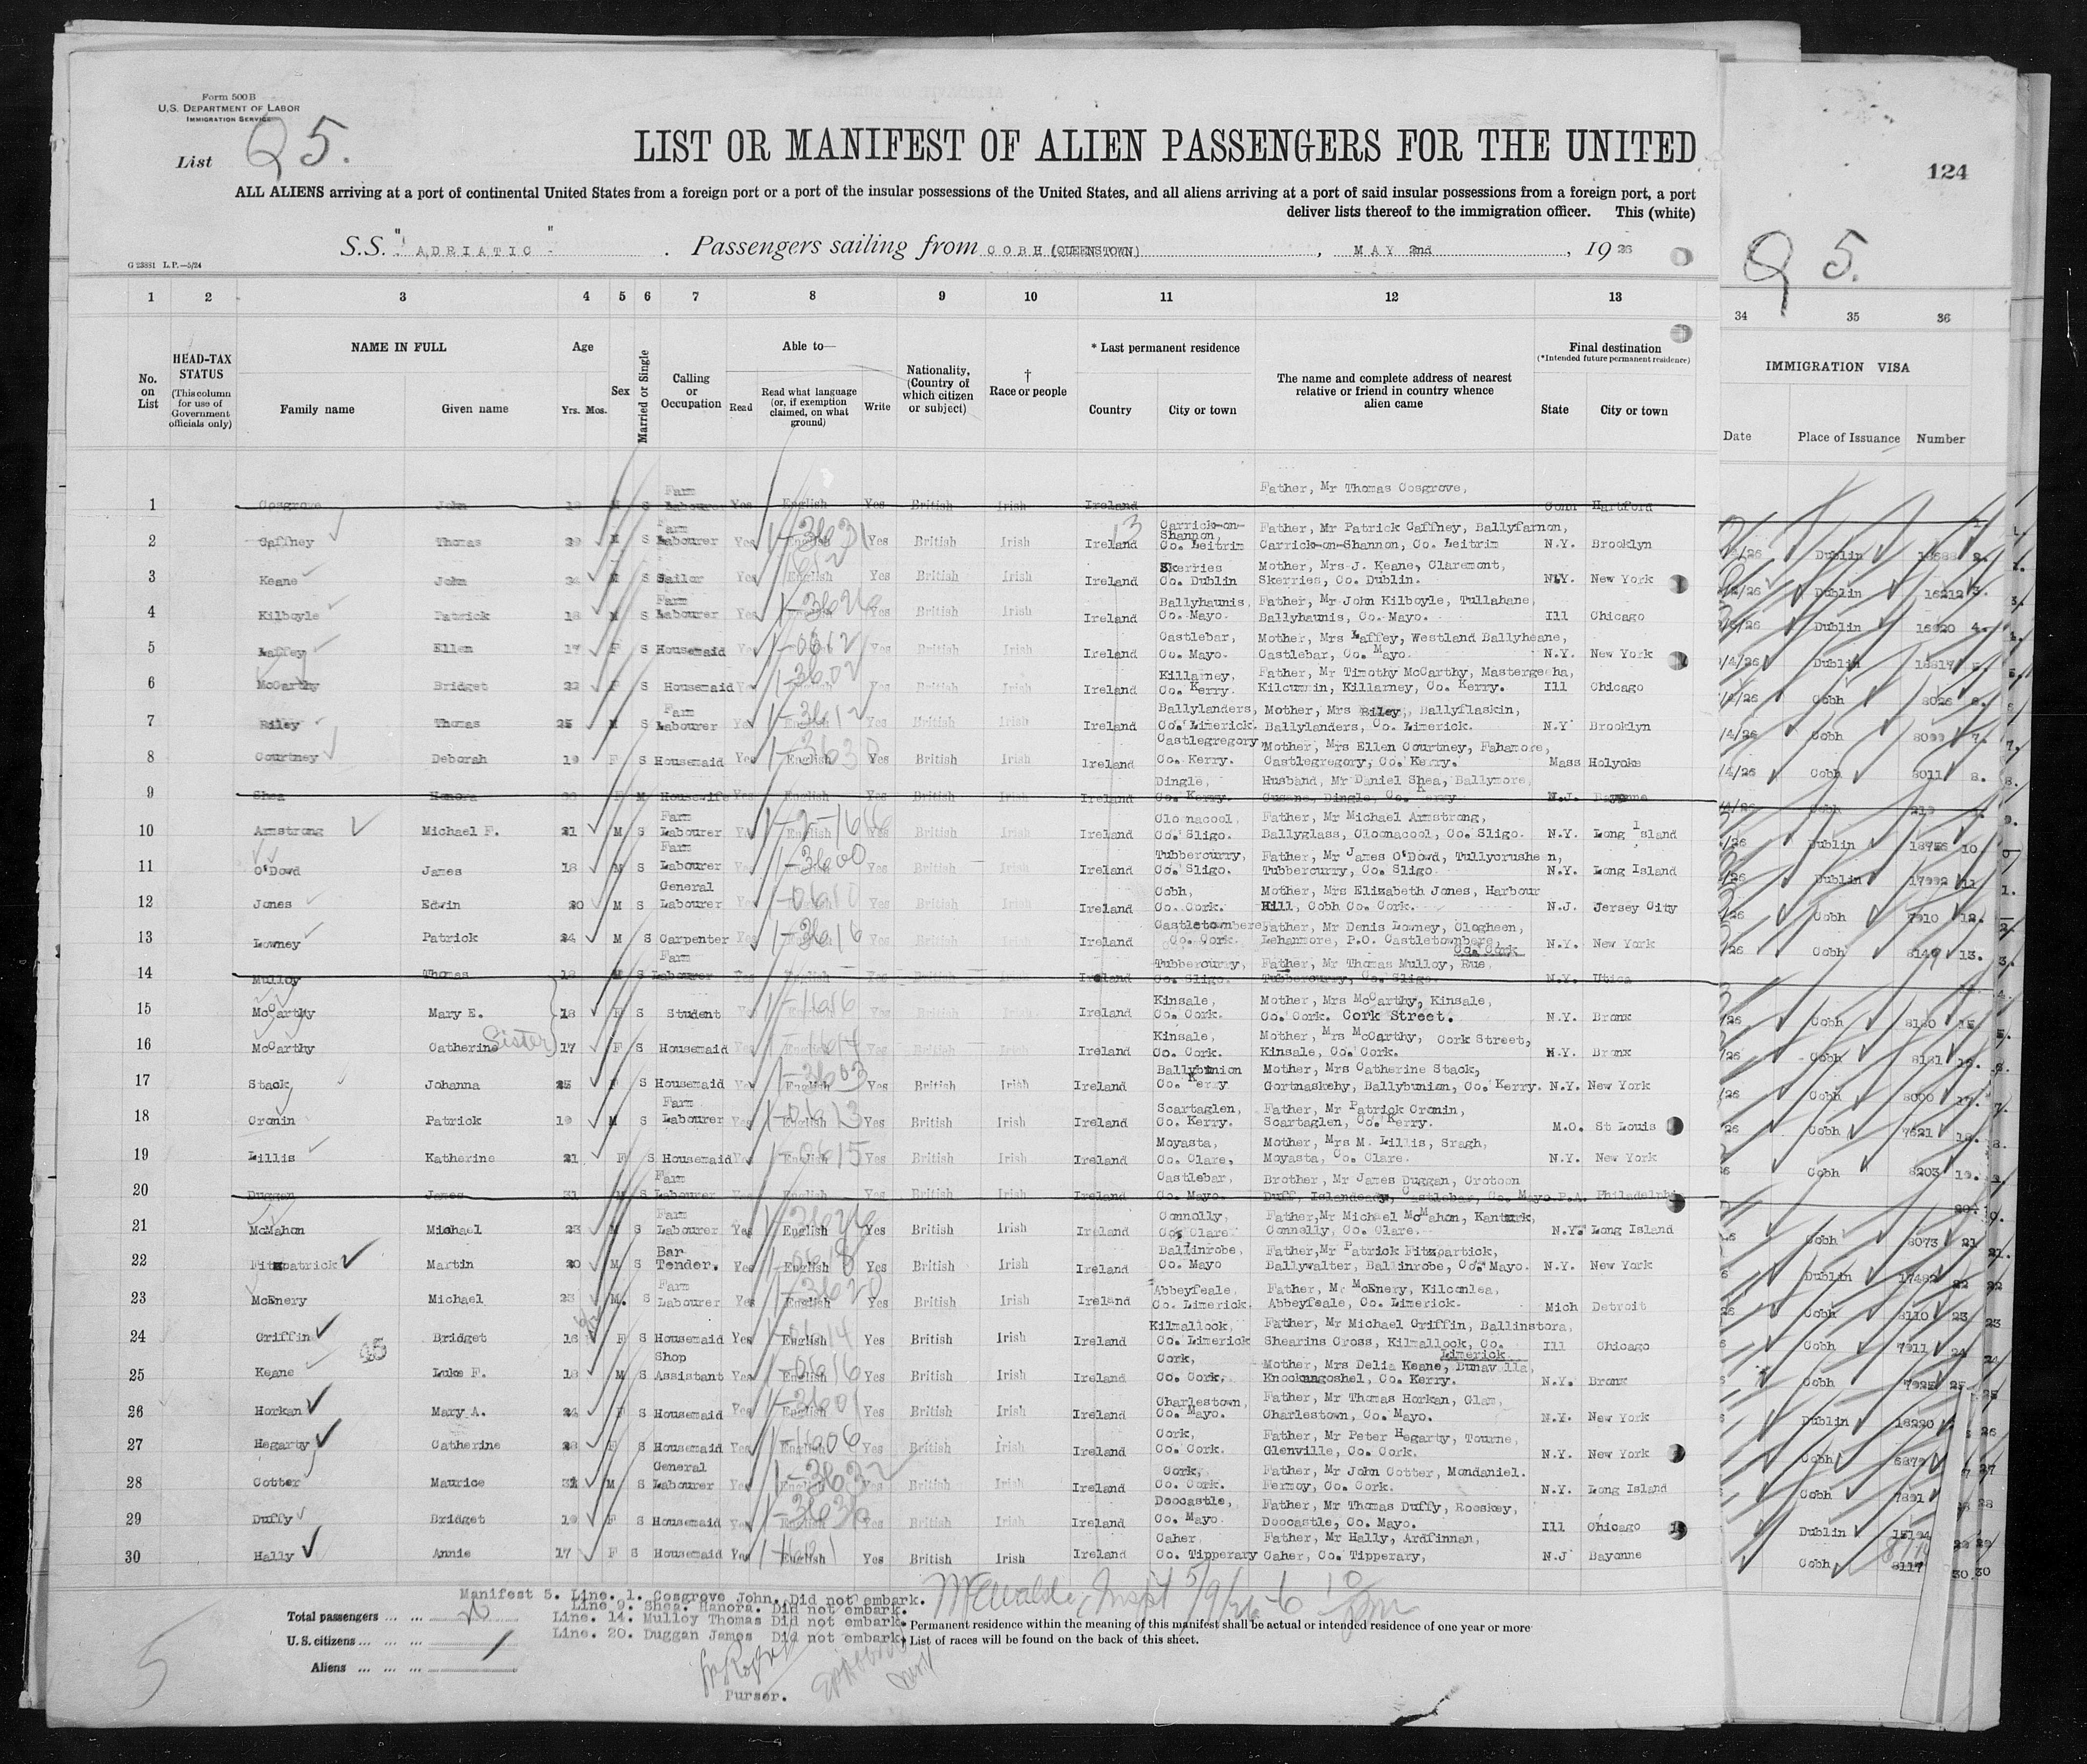 Form 500 B
U.S. DEPARTMENT OF LABOR
IMMIGRATION SERVICE
List Q 5.
LIST OR MANIFEST OF ALIEN PASSENGERS FOR THE UNITED
124
ALL ALIENS arriving at a port of continental United States from a foreign port or a port of the insular possessions of the United States, and all aliens arriving at a port of said insular possessions from a foreign port, a port
deliver lists thereof to the immigration officer. This (white)
S.S. "ADRIATIC" . Passengers sailing from COBH (QUEENSTOWN) , MAY 2nd , 19 26
Q 5.
G 23881 L.P.—5/24
1 2 3 4 5 6 7 8 9 10 11 12 13 34 35 36
No. on List
HEAD-TAX STATUS (This column for use of Government officials only)
NAME IN FULL
Family name Given name
Age
Yrs. Mos.
Sex
Married or Single
Calling or Occupation
Able to—
Read
Read what language (or, if exemption claimed, on what ground)
Write
Nationality, (Country of which citizen or subject)
† Race or people
* Last permanent residence
Country City or town
The name and complete address of nearest relative or friend in country whence alien came
Final destination
(*Intended future permanent residence)
State City or town
IMMIGRATION VISA
Date Place of Issuance Number
1 Cosgrove John 18 M S Farm Labourer Yes English Yes British Irish Ireland Father, Mr Thomas Cosgrove, Conn Hartford
2 Gaffney Thomas 29 M S Farm Labourer Yes English Yes British Irish Ireland Carrick-on-Shannon, Co. Leitrim Father, Mr Patrick Gaffney, Ballyfarnon, Carrick-on-Shannon, Co. Leitrim N.Y. Brooklyn Dublin 2.
3 Keane John 24 M S Sailor Yes English Yes British Irish Ireland Skerries Co. Dublin Mother, Mrs J. Keane, Claremont, Skerries, Co. Dublin. N.Y. New York Dublin 16212 3.
4 Kilboyle Patrick 18 M S Farm Labourer Yes English Yes British Irish Ireland Ballyhaunis, Co. Mayo. Father, Mr John Kilboyle, Tullahane, Ballyhaunis, Co. Mayo. Ill Chicago Dublin 4.
5 Laffey Ellen 17 F S Housemaid Yes English Yes British Irish Ireland Castlebar, Co. Mayo. Mother, Mrs Laffey, Westland Ballyheane, Castlebar, Co. Mayo. N.Y. New York Dublin 18817
6 McCarthy Bridget 22 F S Housemaid Yes English Yes British Irish Ireland Killarney, Co. Kerry. Father, Mr Timothy McCarthy, Mastergeeha, Kilcummin, Killarney, Co. Kerry. Ill Chicago Cobh 8026 6.
7 Riley Thomas 25 M S Farm Labourer Yes English Yes British Irish Ireland Ballylanders, Co. Limerick. Mother, Mrs Riley, Ballyflaskin, Ballylanders, Co. Limerick. N.Y Brooklyn Cobh 7.
8 Courtney Deborah 19 F S Housemaid Yes English Yes British Irish Ireland Castlegregory Co. Kerry. Mother, Mrs Ellen Courtney, Fahamore, Castlegregory, Co. Kerry. Mass Holyoke Cobh 8011 8.
9 Shea Honora F M Housewife Yes English Yes British Irish Ireland Dingle, Co. Kerry. Husband, Mr Daniel Shea, Ballymore, Dingle, Co. Kerry N.J. Bayonne Cobh
10 Armstrong Michael F. 21 M S Farm Labourer Yes English Yes British Irish Ireland Clo nacool, Co. Sligo. Father, Mr Michael Armstrong, Ballyglass, Cloonacool, Co. Sligo. N.Y. Long Island Dublin 18756 10.
11 O'Dowd James 18 M S Farm Labourer Yes English Yes British Irish Ireland Tubbercurry, Co. Sligo. Father, Mr James O'Dowd, Tullycrushe n, Tubbercurry, Co. Sligo. N.Y. Long Island Dublin 17992 11
12 Jones Edwin 20 M S General Labourer Yes English Yes British Irish Ireland Cobh, Co. Cork. Mother, Mrs Elizabeth Jones, Harbour Hill, Cobh Co. Cork. N.J. Jersey City Cobh 7910 12.
13 Lowney Patrick 24 M S Carpenter Yes English Yes British Irish Ireland Castletownbere, Co. Cork. Father, Mr Denis Lowney, Clogheen, Lehanmore, P.O. Castletownbere, Co. Cork N.Y. New York Cobh 13.
14 Mulloy Thomas 18 M S Farm Labourer Yes English Yes British Irish Ireland Tubbercurry, Co. Sligo. Father, Mr Thomas Mulloy, Rue, Tubbercurry, Co. Sligo. N.Y. Utica
15 McCarthy Mary E. 18 F S Student Yes English Yes British Irish Ireland Kinsale, Co. Cork. Mother, Mrs McCarthy, Kinsale, Co. Cork. Cork Street. N.Y. Bronx Cobh 8180 15.
16 McCarthy Catherine Sister 17 F S Housemaid Yes English Yes British Irish Ireland Kinsale, Co. Cork. Mother, Mrs McCarthy, Cork Street, Kinsale, Co. Cork. N.Y. Bronx Cobh 8181 16.
17 Stack Johanna 25 F S Housemaid Yes English Yes British Irish Ireland Ballybunion Co. Kerry Mother, Mrs Catherine Stack, Gortnaskehy, Ballybunion, Co. Kerry. N.Y. New York Cobh 8000 17.
18 Cronin Patrick 19 M S Farm Labourer Yes English Yes British Irish Ireland Scartaglen, Co. Kerry. Father, Mr Patrick Cronin, Scartaglen, Co. Kerry. M.O. St Louis Cobh 7621 18.
19 Lillis Katherine 21 F S Housemaid Yes English Yes British Irish Ireland Moyasta, Co. Clare, Mother, Mrs M. Lillis, Sragh, Moyasta, Co. Clare. N.Y. New York Cobh 8203 19.
20 Duggan James 31 M S Farm Labourer Yes English Yes British Irish Ireland Castlebar, Co. Mayo. Brother, Mr James Duggan, Crotoon Duff, Islandeady, Castlebar, Co. Mayo. P.A. Philadelphi
21 McMahon Michael 23 M S Farm Labourer Yes English Yes British Irish Ireland Connolly, Co. Clare Father, Mr Michael McMahon, Kanturk, Connolly, Co. Clare. N.Y. Long Island Cobh 8073 21
22 Fitzpatrick Martin 20 M S Bar Tender. Yes English Yes British Irish Ireland Ballinrobe, Co. Mayo Father, Mr Patrick Fitzpartick, Ballywalter, Ballinrobe, Co. Mayo. N.Y. New York Dublin 17482 22
23 McEnery Michael 23 M. S Farm Labourer Yes English Yes British Irish Ireland Abbeyfeale, Co. Limerick. Father, Mr McEnery, Kilconlea, Abbeyfeale, Co. Limerick. Mich Detroit Cobh 8110 23
24 Griffin Bridget 16 F S Housemaid Yes English Yes British Irish Ireland Kilmallock, Co. Limerick Father, Mr Michael Griffin, Ballinstora, Shearins Cross, Kilmallock, Co. Limerick Ill Chicago Cobh 7911 24
25 Keane Luke F. 18 M S Shop Assistant Yes English Yes British Irish Ireland Cork, Co. Cork. Mother, Mrs Delia Keane, Dunav lla, Knocknagoshel, Co. Kerry. N.Y. Bronx Cobh 7925 25
26 Horkan Mary A. 24 F S Housemaid Yes English Yes British Irish Ireland Charlestown, Co. Mayo. Father, Mr Thomas Horkan, Glan, Charlestown, Co. Mayo. N.Y. New York Dublin 18220 26
27 Hegarty Catherine 28 F S Housemaid Yes English Yes British Irish Ireland Cork, Co. Cork. Father, Mr Peter Hegarty, Tourne, Glenville, Co. Cork. N.Y. New York Cobh 27
28 Cotter Maurice 31 M S General Labourer Yes English Yes British Irish Ireland Cork, Co. Cork. Father, Mr John Cotter, Mondaniel. Fermoy, Co. Cork. N.Y. Long Island Cobh 7891 28
29 Duffy Bridget 19 F S Housemaid Yes English Yes British Irish Ireland Doocastle, Co. Mayo. Father, Mr Thomas Duffy, Rooskey, Doocastle, Co. Mayo. Ill Chicago Dublin 29
30 Hally Annie 17 F S Housemaid Yes English Yes British Irish Ireland Caher, Co. Tipperary Father, Mr Hally, Ardfinnan, Caher, Co. Tipperary, N.J Bayonne Cobh 8117 30
Manifest 5. Line. 1. Cosgrove John. Did not embark.
Line 9. Shea. Hanora. Did not embark.
Line. 14. Mulloy Thomas Did not embark.
Line. 20. Duggan James Did not embark
Total passengers ... ... 26
U.S. citizens ... ... /
Aliens ... ... ...
* Permanent residence within the meaning of this manifest shall be actual or intended residence of one year or more
† List of races will be found on the back of this sheet.
Purser.
5